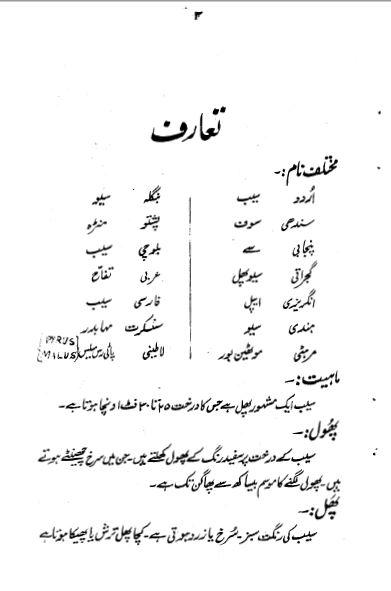 ۳
تعارف
مختلف نام :-
اُردو سیب بنگلہ سیو
سندھی سوف پشتو منڑہ
پنجابی سے بلوچی سیب
گجراتی سیوپھل عربی تفاح
انگریزی ایپل فارسی سیب
ہندی سیو سنسکرت مہابدر
مرہٹی موٹھین پور لاطینی پائی رس میلس [PYRUS MALUS]
ماہیت :-
سیب ایک مشہور پھل ہے جس کا درخت ۲۵ تا ۳۰ فٹ اونچا ہوتا ہے۔
پھُول :-
سیب کے درخت پر سفید رنگ کے پھول کھلتے ہیں۔ جن میں سرخ چھینٹے ہوتے
ہیں۔ پھولی لگنے کا موسم بیساکھ سے پھاگن تک ہے۔
پھَل :-
سیب کی رنگت سبز۔ سُرخ یا زرد ہوتی ہے۔ کچا پھل ترش یا پھیکا ہوتا ہے